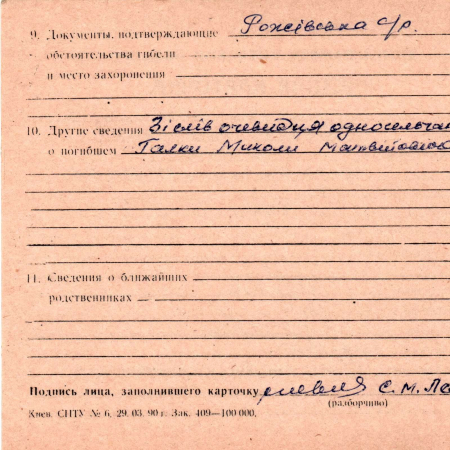 9. Документы, подтверждающие Рожівська с/р.
обстоятельства гибели
и место захоронения
10. Другие сведения Зі слів очевидця односельча
о погибшем Галки Миколи Матвійович
11. Сведения о ближайших
родственниках
Подпись лица, заполнившего карточку С. М. Ле
(разборчиво)
Киев. СНТУ № 6, 29. 03. 90 г. Зак. 409—100 000,